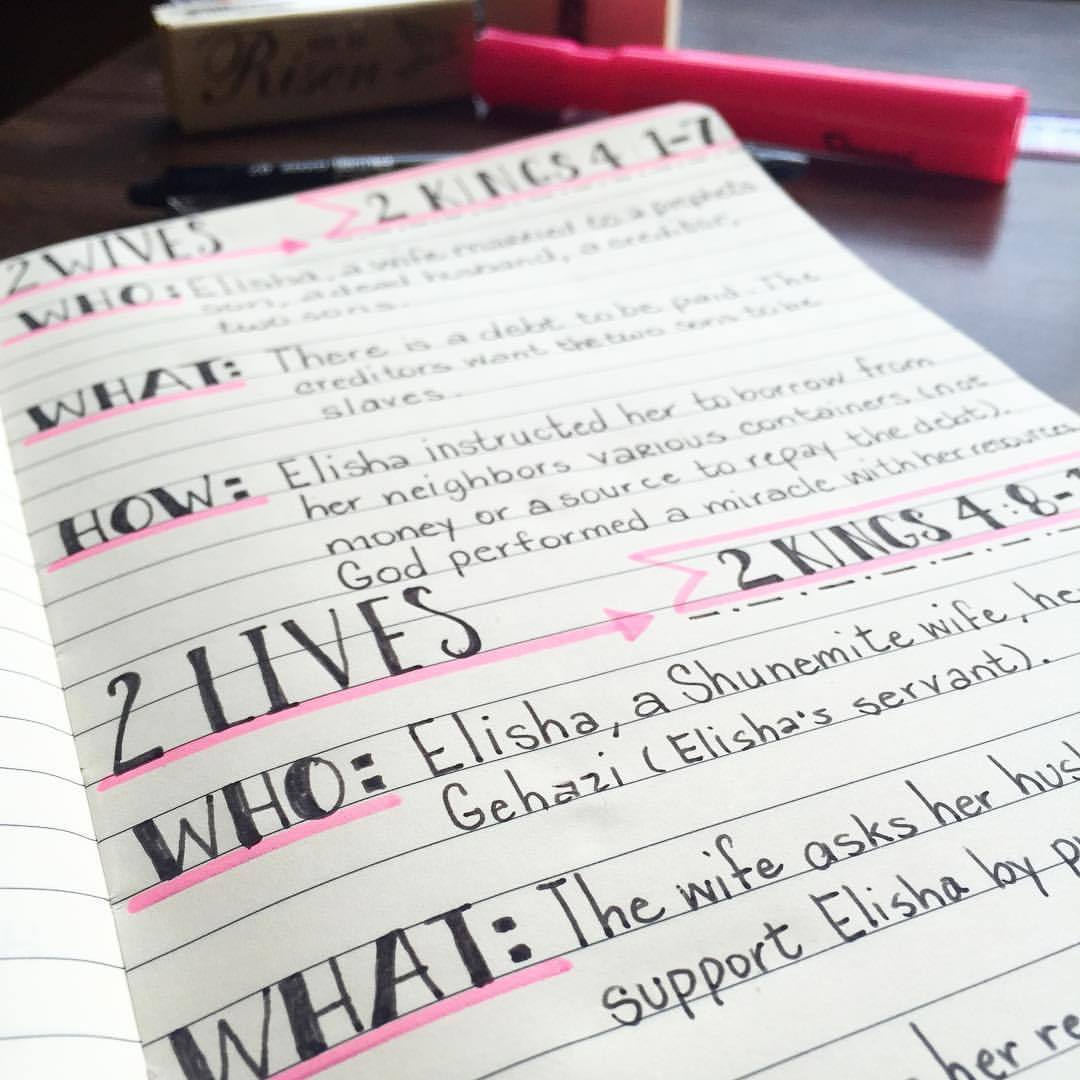 Risen
2 WIVES
2 KINGS 4 1-7
WHO: Elisha, a wife married to a prophets
son, a dead husband, a creditor,
two sons.
WHAT: There is a debt to be paid. The
creditors want the two sons to be
slaves.
HOW: Elisha instructed her to borrow from
her neighbors various containers (not
money or a source to repay the debt).
God performed a miracle with her resources
2 LIVES
2 KINGS 4:8-
WHO: Elisha, a Shunemite wife, he
Gehazi (Elisha's servant).
WHAT: The wife asks her hus
support Elisha by p
her re